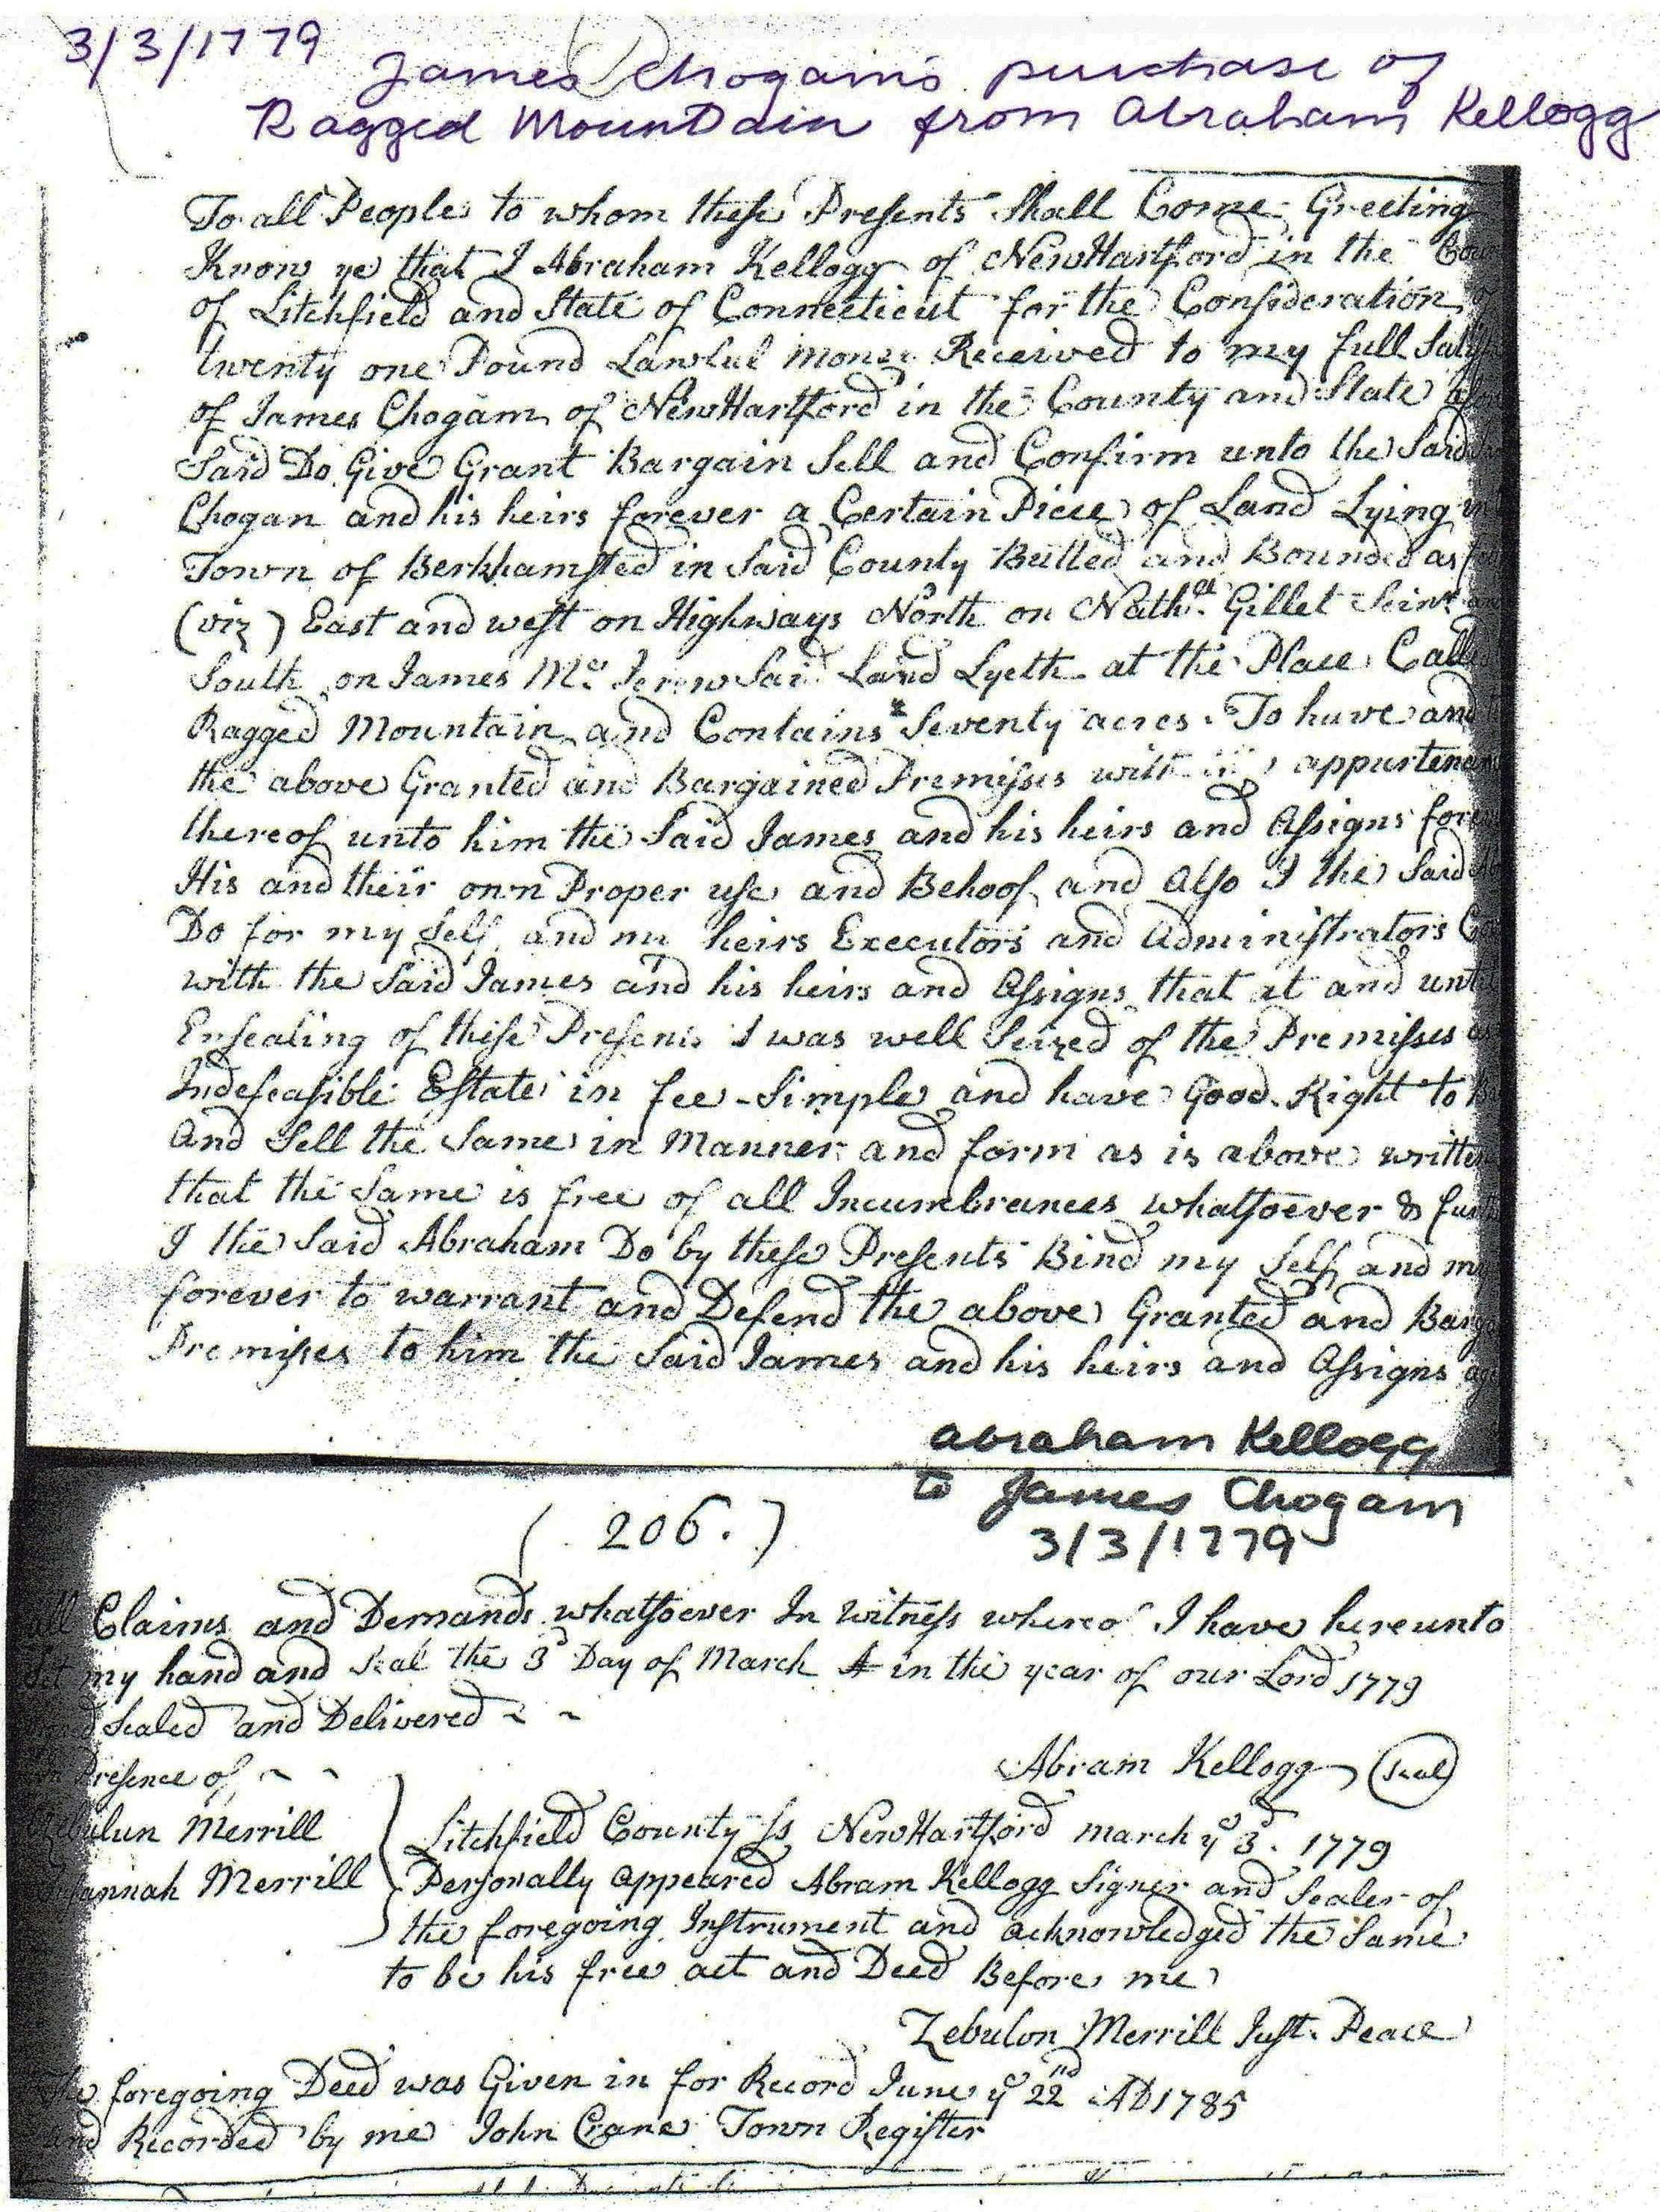 3/3/1779
James Chogam's purchase of
Ragged Mountain from Abraham Kellogg
To all People to whom these Presents Shall Come Greeting
Know ye that I Abraham Kellogg of NewHartford in the Cou
of Litchfield and State of Connecticut for the Consideration of
twenty one Pound Lawful Money Received to my full Satisf
of James Chogam of NewHartford in the County and State afore
Said Do Give Grant Bargain Sell and Confirm unto the Said
Chogan and his heirs forever a Certain Piece of Land Lying in
Town of Berkhamsted in Said County Butted and Bounded as fol
(viz) East and west on Highways North on Nathll Gillet
South on James Said Land Lyeth at the Place Called
Ragged Mountain and Contains Seventy acres To have and
the above Granted and Bargained Premisses with appurtenan
thereof unto him the Said James and his heirs and Assigns forev
His and their own Proper use and Behoof and Also I the Said Ab
Do for my Self and my heirs Executors and Administrators Co
with the Said James and his heirs and Assigns that at and until
Ensealing of these Presents I was well Seized of the Premisses as
Indefeasible Estate in fee-Simple and have Good Right to B
And Sell the Same in Manner and form as is above written
that the Same is free of all Incumbrances whatsoever & furt
I the Said Abraham Do by these Presents Bind my Self and my
forever to warrant and Defend the above Granted and Barga
Premisses to him the Said James and his heirs and Assigns aga
Abraham Kellogg
to James Chogam
3/3/1779
(206.)
all Claims and Demands whatsoever In witness whereof I have hereunto
Set my hand and Seal the 3d Day of March A in the year of our Lord 1779
Sealed and Delivered ~ ~
in Presence of ~ ~
Abram Kellogg (Seal)
Zebulun Merrill
Susannah Merrill
Litchfield County Ss NewHartford march ye 3d. 1779
Personally Appeared Abram Kellogg Signer and Sealer of
the foregoing Instrument and acknowledged the Same
to be his free act and Deed Before me
Zebulon Merrill Just. Peace
The foregoing Deed was Given in for Record June ye 22nd AD 1785
and Recorded by me John Crane Town Register